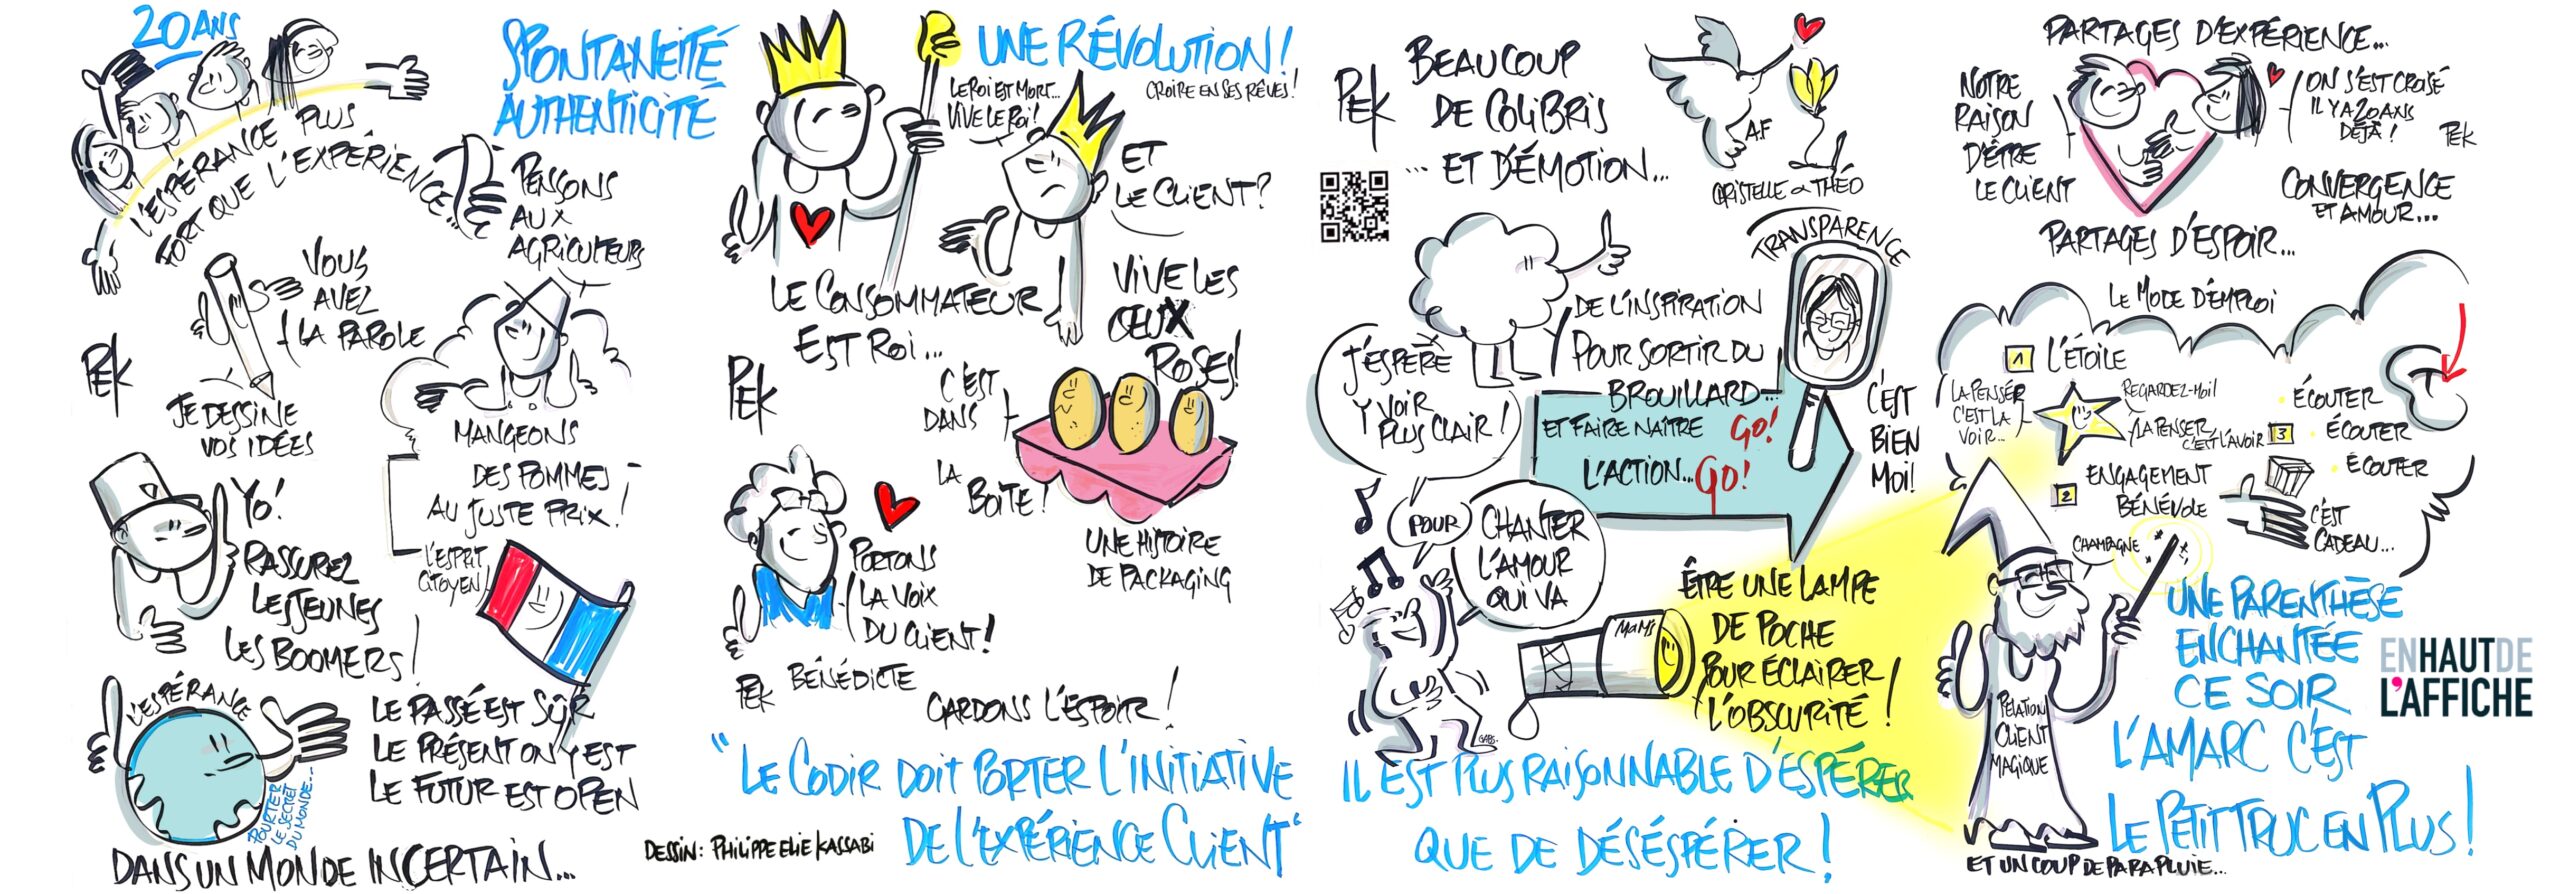 20 ANS
L'ESPÉRANCE PLUS
FORT QUE L'EXPÉRIENCE...
SPONTANEITÉ
AUTHENTICITÉ
PENSONS
AUX
AGRICULTEURS
VOUS
AVEZ
LA PAROLE
PEK
JE DESSINE
VOS IDÉES
MANGEONS
DES POMMES
AU JUSTE PRIX!
YO!
RASSUREZ
LES JEUNES
LES BOOMERS!
L'ESPRIT
CITOYEN
L'ESPÉRANCE
POURTER
LE SECRET
DU MONDE...
LE PASSÉ EST SÛR
LE PRÉSENT ON Y EST
LE FUTUR EST OPEN
DANS UN MONDE INCERTAIN...
UNE RÉVOLUTION!
CROIRE EN SES RÊVES!
LE ROI EST MORT...
VIVE LE ROI!
ET
LE CLIENT?
LE CONSOMMATEUR
EST ROI...
VIVE LES
ŒUX
ROSES!
C'EST
DANS
LA
BOITE!
UNE HISTOIRE
DE PACKAGING
PEK
PORTONS
LA VOIX
DU CLIENT!
PEK
BÉNÉDICTE
GARDONS L'ESPOIR!
"LE CODIR DOIT PORTER L'INITIATIVE
DE L'EXPÉRIENCE CLIENT"
DESSIN: PHILIPPE ELIE KASSABI
PEK
BEAUCOUP
DE COLIBRIS
... ET D'ÉMOTION...
A.F
CRISTELLE & THÉO
TRANSPARENCE
DE L'INSPIRATION
POUR SORTIR DU
BROUILLARD...
ET FAIRE NAÎTRE GO!
L'ACTION... GO!
J'ESPÈRE
Y VOIR
PLUS CLAIR!
C'EST
BIEN
MOI!
POUR
CHANTER
L'AMOUR
QUI VA
GABS.
MAMS
ÊTRE UNE LAMPE
DE POCHE
POUR ÉCLAIRER
L'OBSCURITÉ!
IL EST PLUS RAISONNABLE D'ESPÉRER
QUE DE DÉSÉSPÉRER!
PARTAGES D'EXPÉRIENCE...
NOTRE
RAISON
D'ÊTRE
LE CLIENT
ON S'EST CROISÉ
IL Y A 20 ANS
DÉJÀ!
PEK
CONVERGENCE
ET AMOUR...
PARTAGES D'ESPOIR...
LE MODE D'EMPLOI
1 L'ÉTOILE
LA PENSER
C'EST LA
VOIR...
REGARDEZ-MOI
LA PENSER
C'EST L'AVOIR
3
ÉCOUTER
ÉCOUTER
ÉCOUTER
2 ENGAGEMENT
BÉNÉVOLE
C'EST
CADEAU...
CHAMPAGNE
RELATION
CLIENT
MAGIQUE
UNE PARENTHÈSE
ENCHANTÉE
CE SOIR
L'AMARC C'EST
LE PETIT TRUC EN PLUS!
ET UN COUP DE PARAPLUIE...
EN HAUT DE
L'AFFICHE